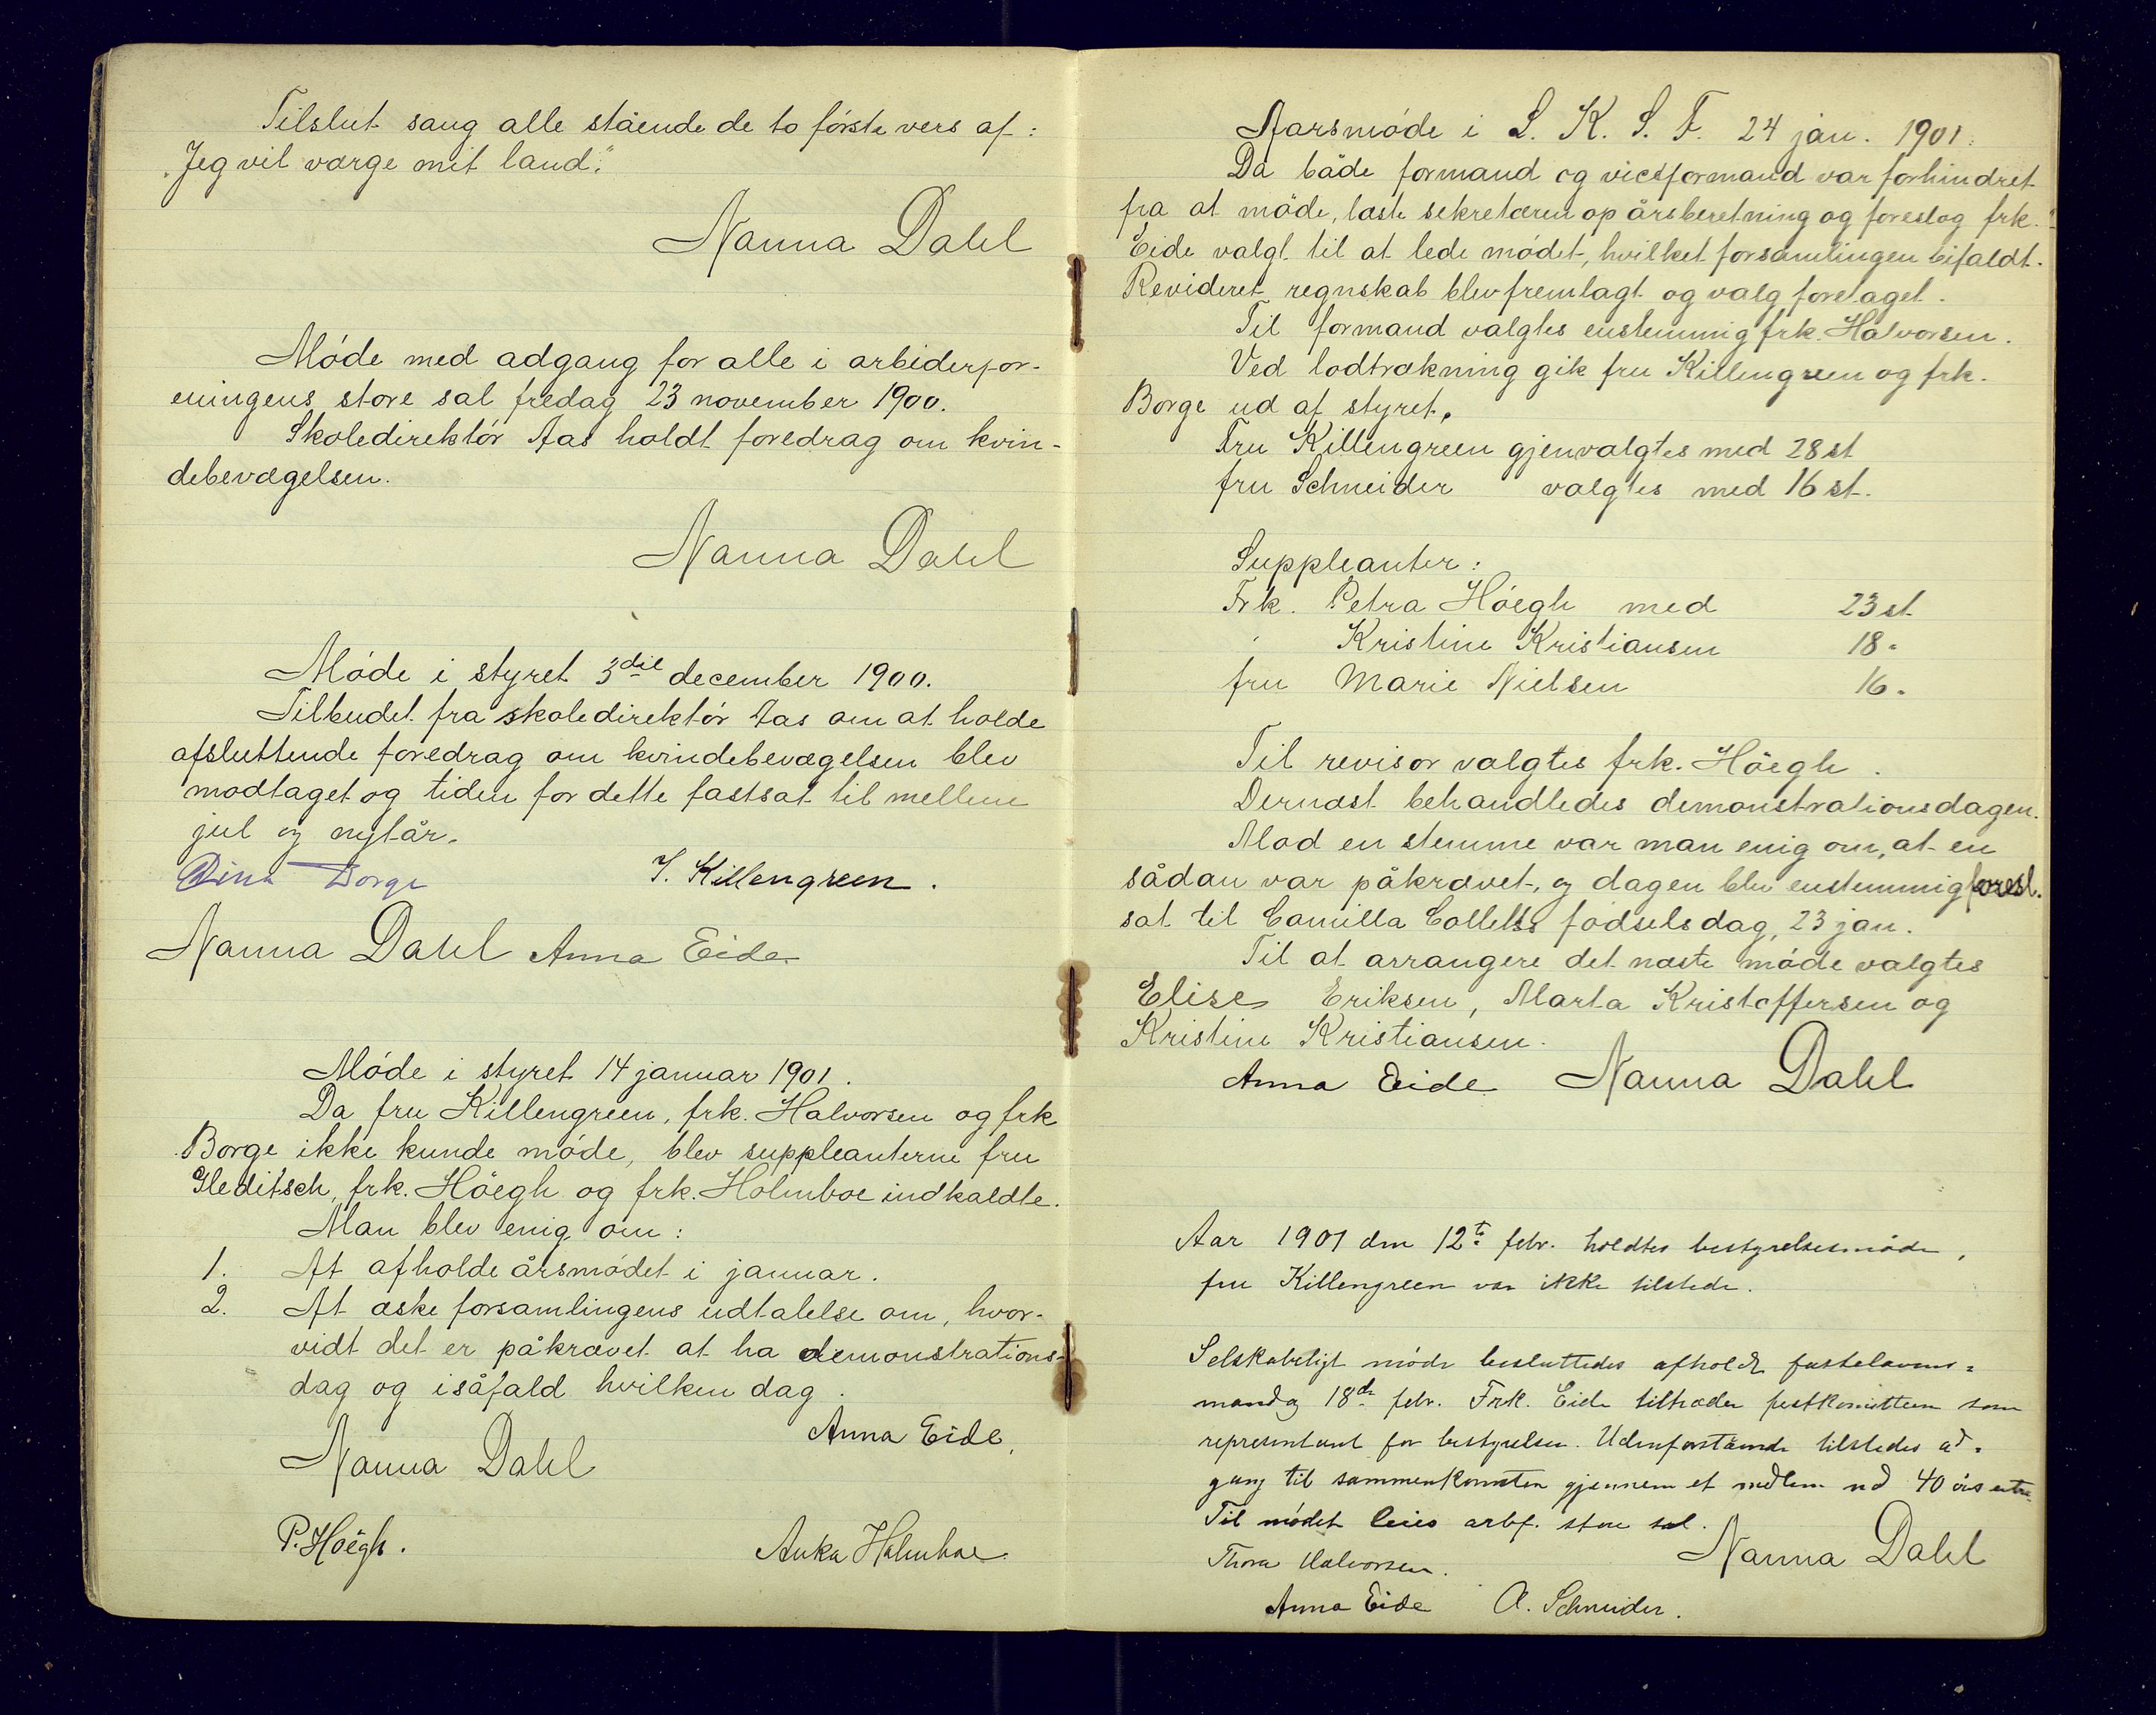 Tilslut sang alle stående de to første vers af:
"Jeg vil værge mit land."
Nanna Dahl
Møde med adgang for alle i arbiderfor-
eningens store sal fredag 23 november 1900.
Skoledirektør Aas holdt foredrag om kvin-
debevægelsen.
Nanna Dahl
Møde i styret 3die december 1900.
Tilbudet fra skoledirektør Aas om at holde
afsluttende foredrag om kvindebevægelsen blev
modtaget og tiden for dette fastsat til mellem
jul og nytår.
Dina Borge I. Killengreen.
Nanna Dahl Anna Eide
Møde i styret 14 januar 1901.
Da fru Killengreen, frk. Halvorsen og frk
Borge ikke kunde møde, blev suppleanterne fru
Gleditsch, frk. Höegh og frk. Holmboe indkaldte.
Man blev enig om:
1. At afholde årsmødet i januar.
2. At æske forsamlingens udtalelse om, hvor-
vidt det er påkrævet at ha demonstrations-
dag og isåfald hvilken dag.
Anna Eide,
Nanna Dahl
P. Höegh. Anka Holmboe
Aarsmøde i L. K. S. F. 24 jan. 1901.
Da både formand og viceformand var forhindret
fra at møde, læste sekretæren op årsberetning og foreslog frk.
Eide valgt til at lede mødet, hvilket forsamlingen bifaldt.
Revideret regnskab blev fremlagt og valg foretaget.
Til formand valgtes enstemmig frk. Halvorsen.
Ved lodtrækning gik fru Killengreen og frk.
Borge ud af styret.
Fru Killengreen gjenvalgtes med 28 st
fru Schneider valgtes med 16 st.
Suppleanter:
Frk. Petra Höegh med 23 st.
" Kristine Kristiansen 18 "
fru Marie Nielsen 16 "
Til revisor valgtes frk. Höegh.
Dernæst behandledes demonstrationsdagen.
Mod en stemme var man enig om, at en
sådan var påkrævet, og dagen blev enstemmig foresl.
sat til Camilla Colletts fødselsdag, 23 jan.
Til at arrangere det næste møde valgtes
Elise Eriksen, Marta Kristoffersen og
Kristine Kristiansen.
Anna Eide Nanna Dahl
Aar 1901 den 12te febr. holdtes bestyrelsesmøde,
fru Killengreen var ikke tilstede.
Selskabeligt møde besluttedes afholdt fastelavns=
mandag 18de febr. Frk. Eide tiltræder festkomitteen som
representant for bestyrelsen. Udenforstående tilstedes ad=
gang til sammenkomsten gjennem et medlem ved 40 øres entre.
Til mødet leies arbf. store sal.
Nanna Dahl
Thora Halvorsen.
Anna Eide A. Schneider.